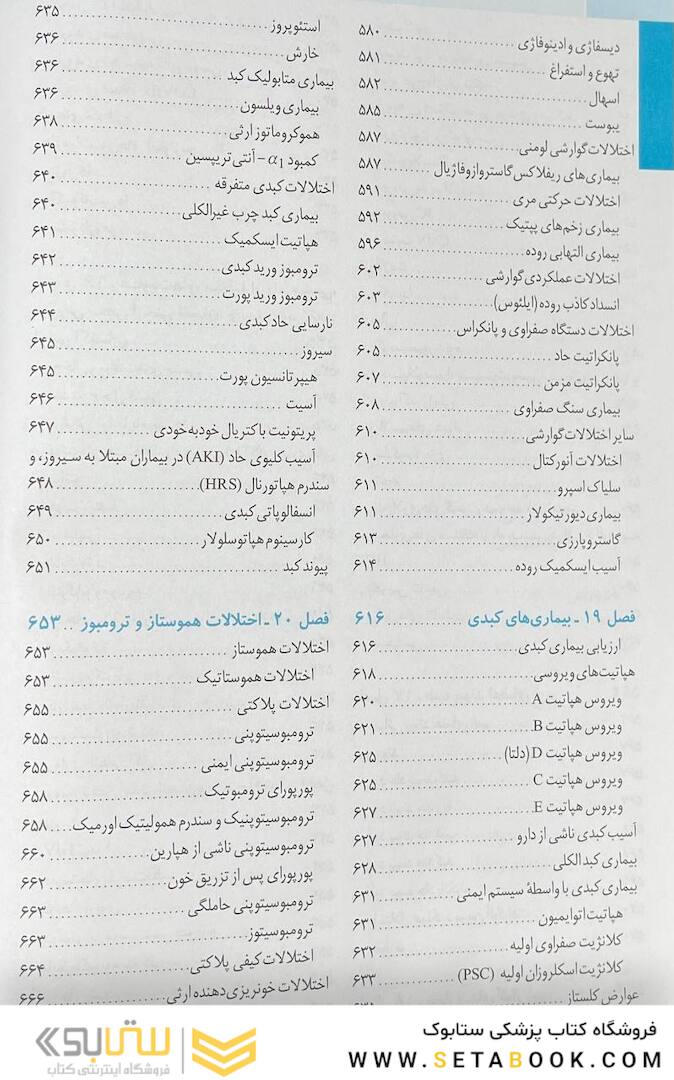 دیسفاژی و ادینوفاژی ۵۸۰
تهوع و استفراغ ۵۸۱
اسهال ۵۸۲
یبوست ۵۸۵
اختلالات گوارشی لومنی ۵۸۷
بیماری‌های ریفلاکس گاستروازوفاژیال ۵۸۷
اختلالات حرکتی مری ۵۹۱
بیماری زخم‌های پپتیک ۵۹۲
بیماری التهابی روده ۵۹۶
اختلالات عملکردی گوارشی ۶۰۲
انسداد کاذب روده (ایلئوس) ۶۰۳
اختلالات دستگاه صفراوی و پانکراس ۶۰۵
پانکراتیت حاد ۶۰۵
پانکراتیت مزمن ۶۰۷
بیماری سنگ صفراوی ۶۰۸
سایر اختلالات گوارشی ۶۱۰
اختلالات آنورکتال ۶۱۰
سلیاک اسپرو ۶۱۱
بیماری دیورتیکولار ۶۱۱
گاستروپارزی ۶۱۳
آسیب ایسکمیک روده ۶۱۴
فصل ۱۹ ـ بیماری‌های کبدی ۶۱۶
ارزیابی بیماری کبدی ۶۱۶
هپاتیت‌های ویروسی ۶۱۸
ویروس هپاتیت A ۶۲۰
ویروس هپاتیت B ۶۲۱
ویروس هپاتیت D (دلتا) ۶۲۵
ویروس هپاتیت C ۶۲۵
ویروس هپاتیت E ۶۲۷
آسیب کبدی ناشی از دارو ۶۲۷
بیماری کبد الکلی ۶۲۸
بیماری کبدی با واسطهٔ سیستم ایمنی ۶۳۱
هپاتیت اتوایمیون ۶۳۱
کلانژیت صفراوی اولیه ۶۳۲
کلانژیت اسکلروزان اولیه (PSC) ۶۳۳
عوارض کلستاز
استئوپروز ۶۳۵
خارش ۶۳۶
بیماری متابولیک کبد ۶۳۶
بیماری ویلسون ۶۳۶
هموکروماتوز ارثی ۶۳۸
کمبود α₁ – آنتی تریپسین ۶۳۹
اختلالات کبدی متفرقه ۶۴۰
بیماری کبد چرب غیرالکلی ۶۴۰
هپاتیت ایسکمیک ۶۴۱
ترومبوز ورید کبدی ۶۴۲
ترومبوز ورید پورت ۶۴۳
نارسایی حاد کبدی ۶۴۴
سیروز ۶۴۵
هیپرتانسیون پورت ۶۴۵
آسیت ۶۴۶
پریتونیت باکتریال خودبه‌خودی ۶۴۷
آسیب کلیوی حاد (AKI) در بیماران مبتلا به سیروز، و
سندرم هپاتورنال (HRS) ۶۴۸
انسفالوپاتی کبدی ۶۴۹
کارسینوم هپاتوسلولار ۶۵۰
پیوند کبد ۶۵۱
فصل ۲۰ ـ اختلالات هموستاز و ترومبوز ۶۵۳
اختلالات هموستاز ۶۵۳
اختلالات هموستاتیک ۶۵۳
اختلالات پلاکتی ۶۵۵
ترومبوسیتوپنی ۶۵۵
ترومبوسیتوپنی ایمنی ۶۵۵
پورپورای ترومبوتیک ۶۵۸
ترومبوسیتوپنیک و سندرم همولیتیک اورمیک ۶۵۸
ترومبوسیتوپنی ناشی از هپارین ۶۶۰
پورپورای پس از تزریق خون ۶۶۲
ترومبوسیتوپنی حاملگی ۶۶۳
ترومبوسیتوز ۶۶۳
اختلالات کیفی پلاکتی ۶۶۴
اختلالات خونریزی‌دهنده ارثی ۶۶۶
فروشگاه کتاب پزشکی ستابوک
WWW.SETABOOK.COM
ستابوک
فروشگاه اینترنتی کتاب